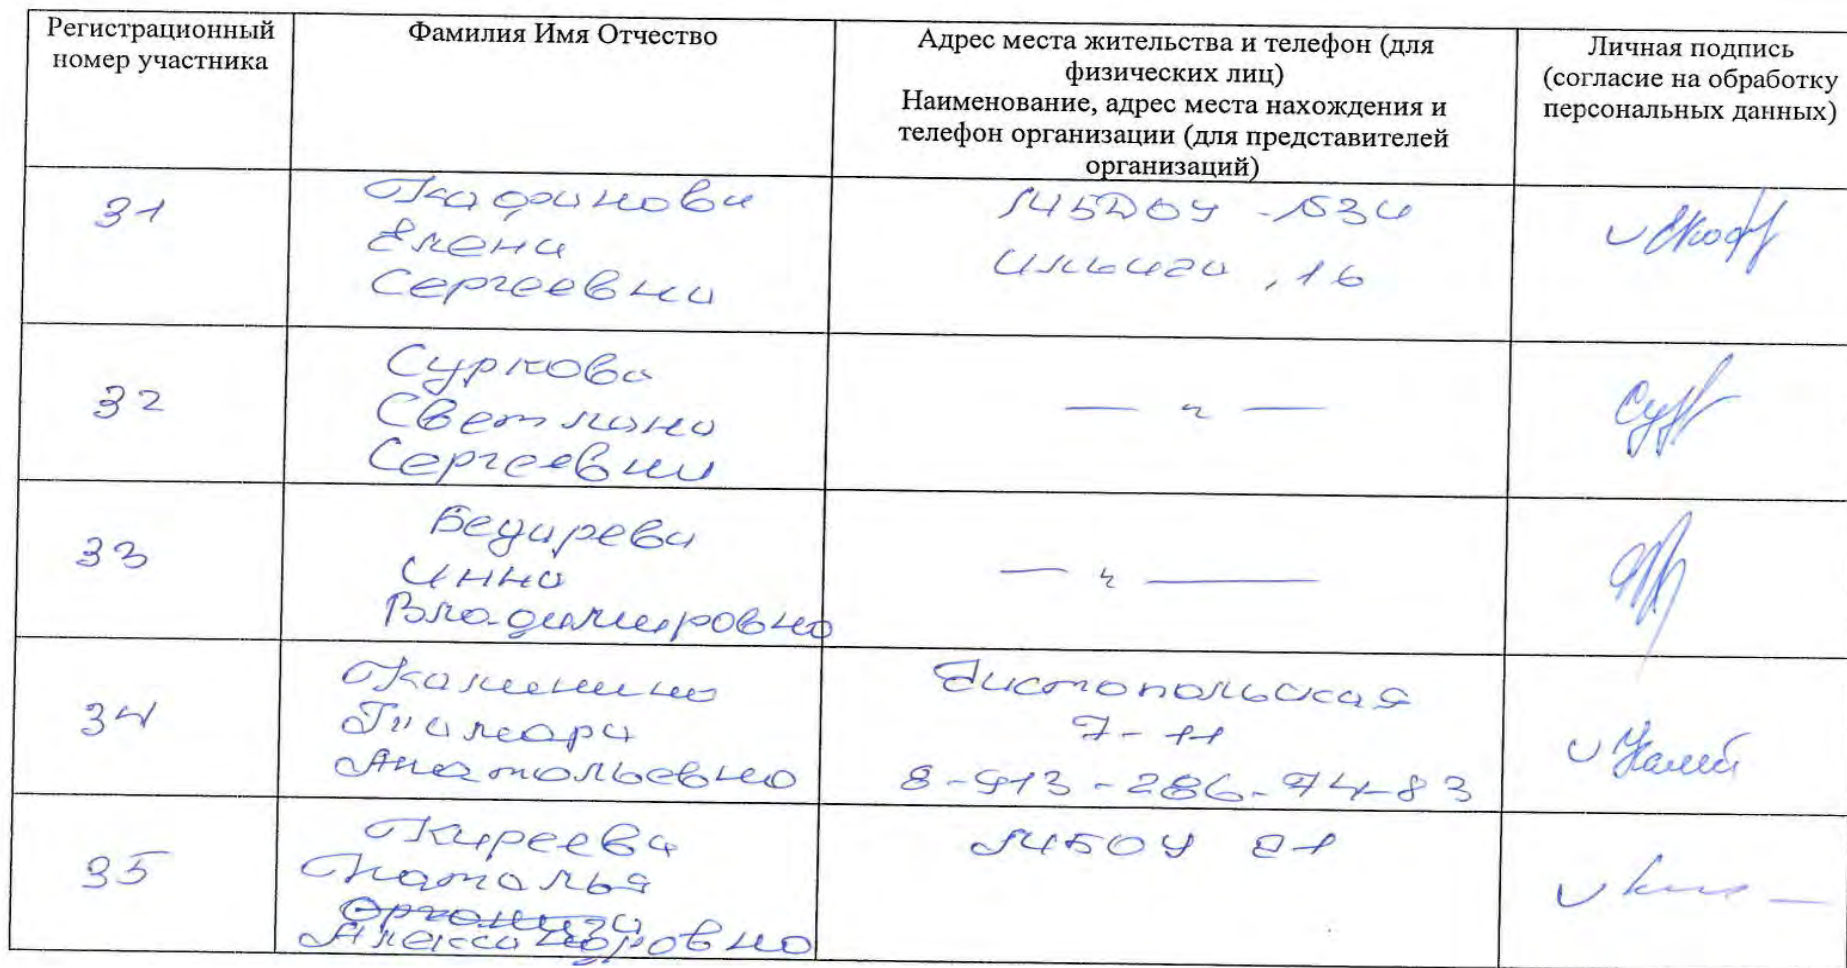 Регистрационный
номер участника
Фамилия Имя Отчество
Адрес места жительства и телефон (для
физических лиц)
Наименование, адрес места нахождения и
телефон организации (для представителей
организаций)
Личная подпись
(согласие на обработку
персональных данных)
31
Кафинова
Елена
Сергеевна
МБДОУ -
16
32
Суркова
Светлана
Сергеевна
— " —
33
Бедарева
Инна
Владимировна
— " —
34
Калинина
Тамара
Анатольевна
Чистопольская
7-11
8-913-286-74-83
35
Киреева
Наталья
Александровна
МБОУ 21